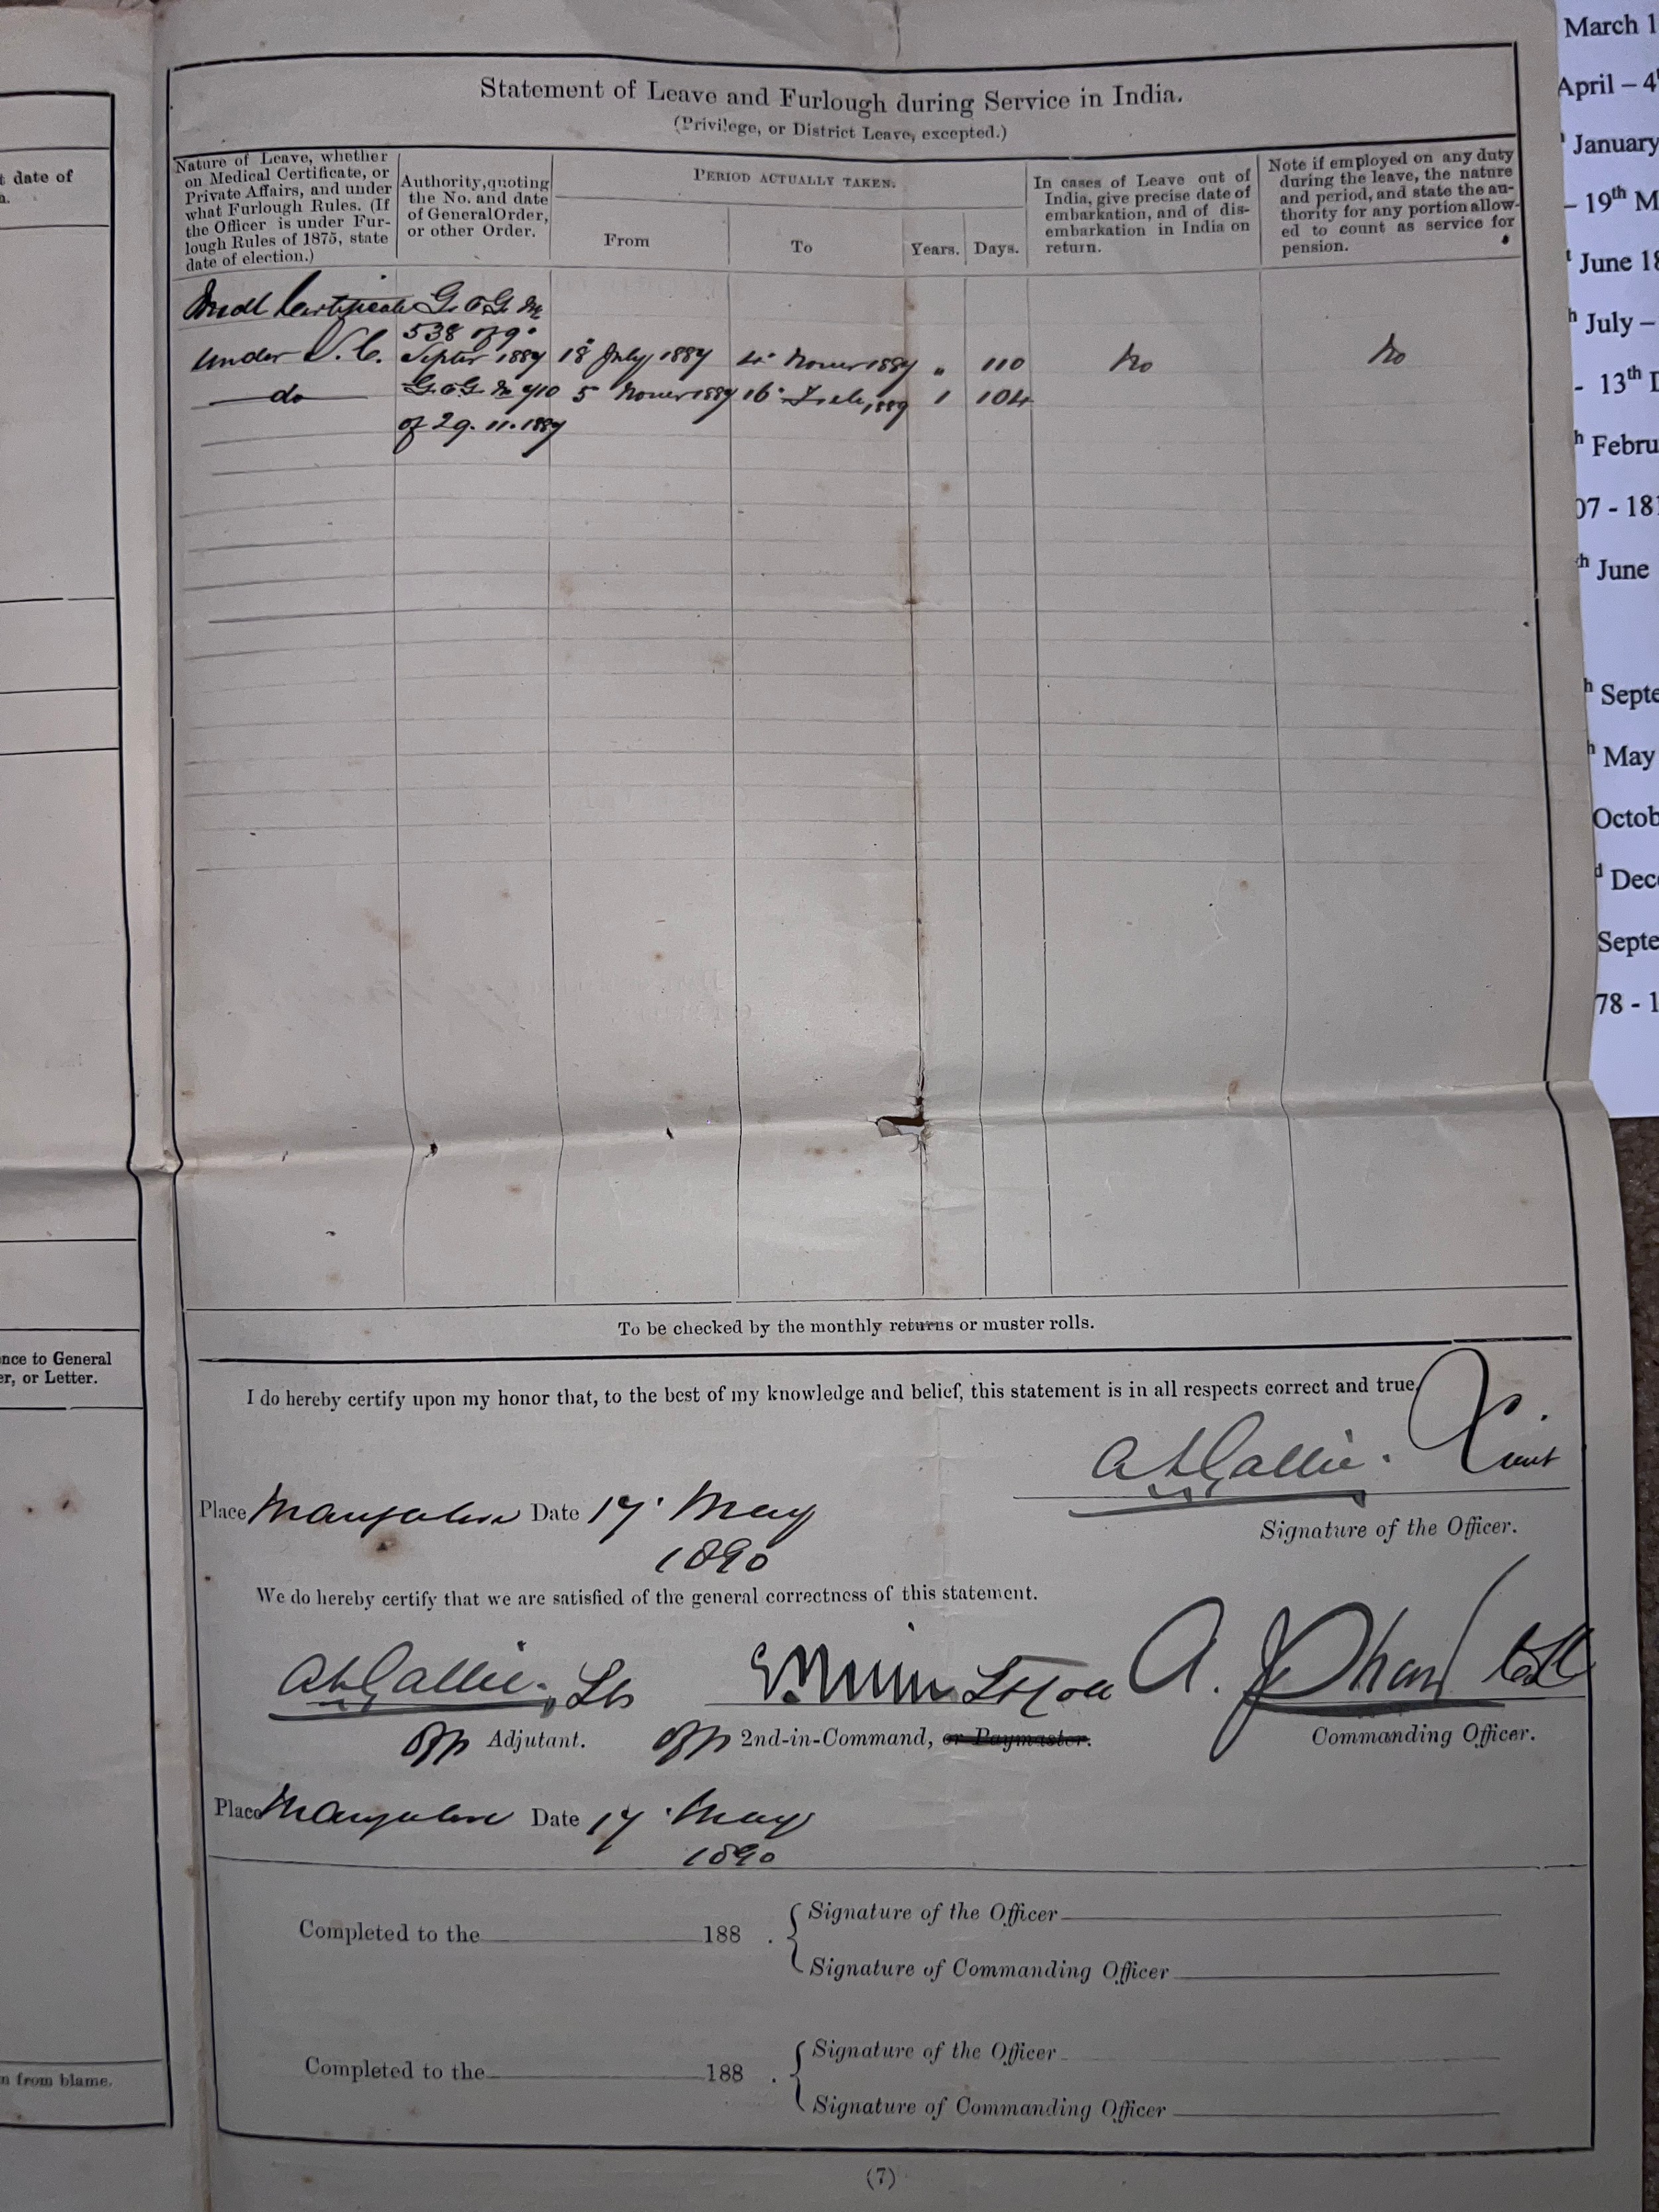 Statement of Leave and Furlough during Service in India.
(Privilege, or District Leave, excepted.)
Nature of Leave, whether
on Medical Certificate, or
Private Affairs, and under
what Furlough Rules. (If
the Officer is under Fur-
lough Rules of 1875, state
date of election.)
Authority, quoting
the No. and date
of General Order,
or other Order.
PERIOD ACTUALLY TAKEN.
From
To
Years.
Days.
In cases of Leave out of
India, give precise date of
embarkation, and of dis-
embarkation in India on
return.
Note if employed on any duty
during the leave, the nature
and period, and state the au-
thority for any portion allow-
ed to count as service for
pension.
Medl Certificate G.O.G. No
538 of 9
under S.C. Septer 1887 18 July 1887 4 Novr 1887 " 110 No No
do G.O.G. No 710 5 Novr 1887 16 Feb 1889 1 104
of 29.11.1887
To be checked by the monthly returns or muster rolls.
I do hereby certify upon my honor that, to the best of my knowledge and belief, this statement is in all respects correct and true.
A L Gallie. Lieut
Place Mangalore Date 17 May
1890
Signature of the Officer.
We do hereby certify that we are satisfied of the general correctness of this statement.
A L Gallie. Lt Col A.
Offg Adjutant. Offg 2nd-in-Command, or Paymaster. Commanding Officer.
Place Mangalore Date 17 May
1890
Completed to the 188 .
Signature of the Officer
Signature of Commanding Officer
Completed to the 188 .
Signature of the Officer
Signature of Commanding Officer
(7)
t date of
nce to General
er, or Letter.
n from blame.
March 1
April – 4
January
– 19th M
June 18
h July –
- 13th D
h Febru
07 - 18
h June
h Septe
h May
Octob
d Dece
Septe
78 - 1